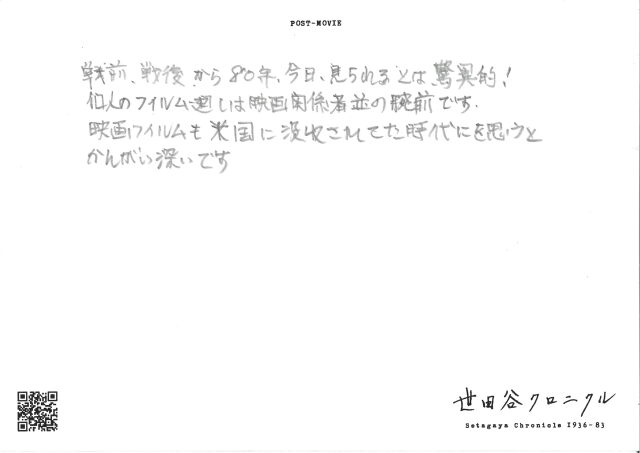 POST-MOVIE
戦前、戦後から80年、今日、見られるとは驚異的!
個人のフイルム廻しは映画関係者並の腕前です.
映画フイルムも米国に没収されてた時代にを思うと
かんがい深いです
世田谷クロニクル
Setagaya Chronicle 1936-83